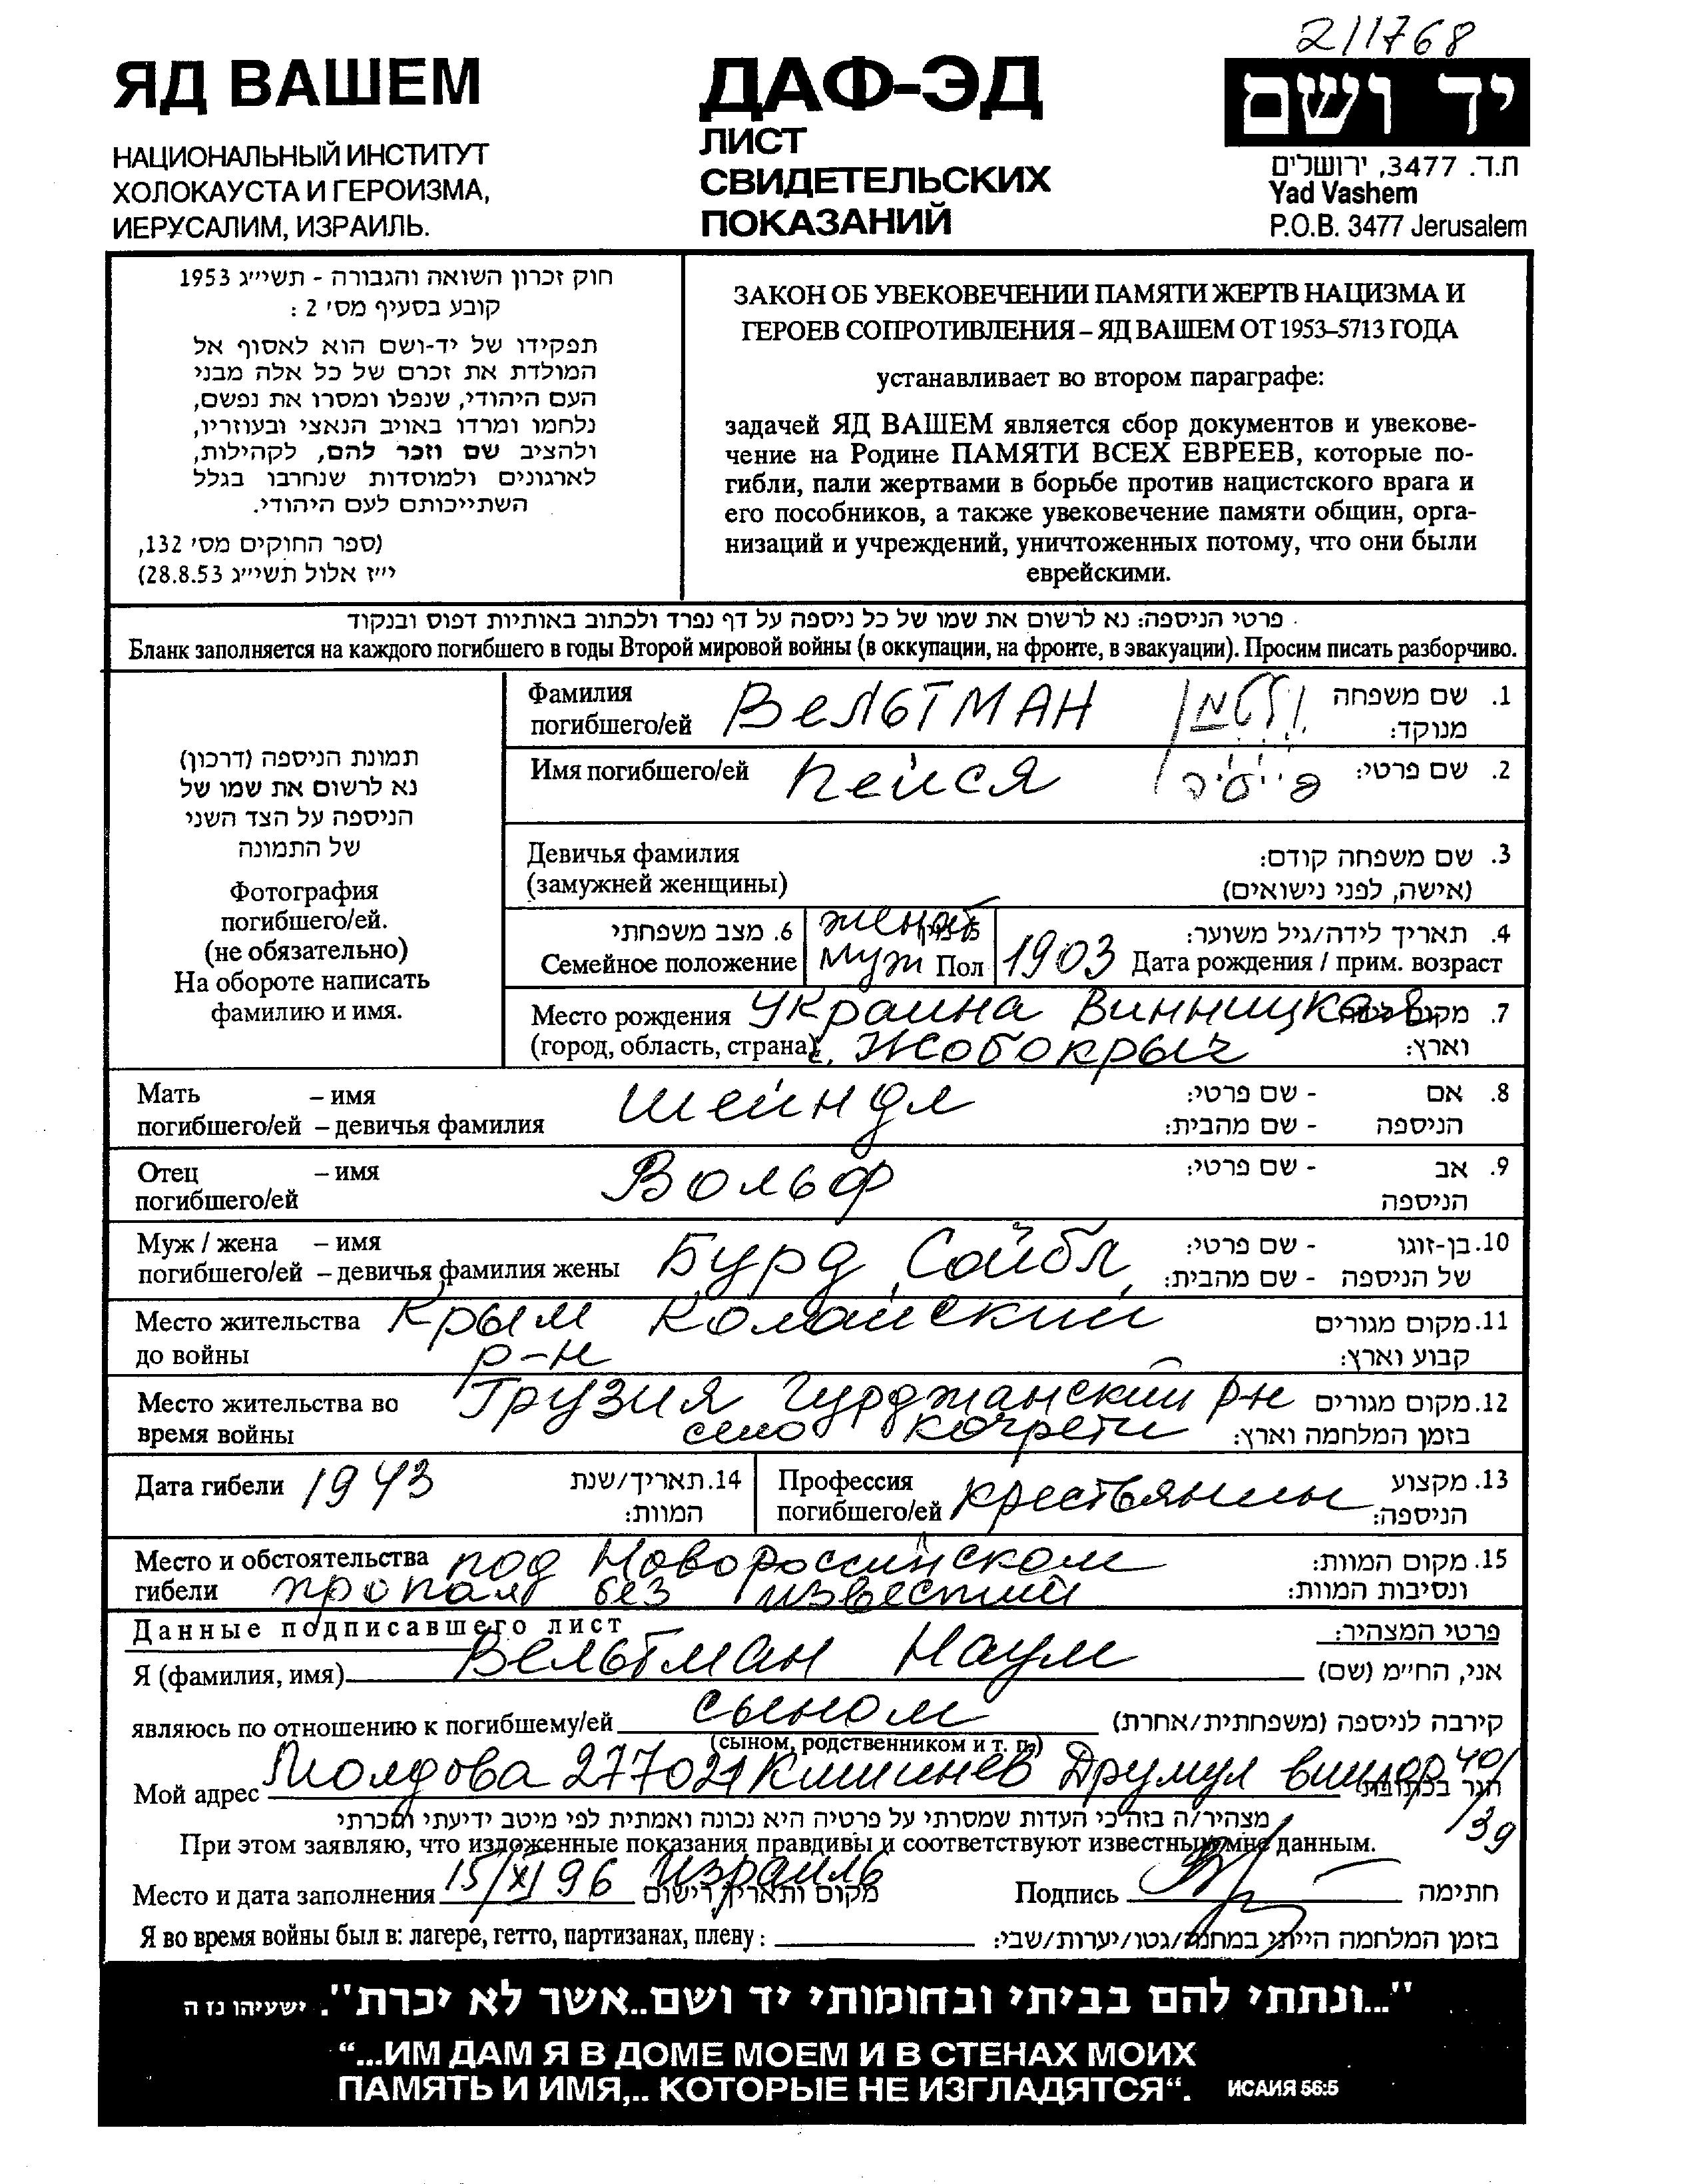 211768
ЯД ВАШЕМ
НАЦИОНАЛЬНЫЙ ИНСТИТУТ
ХОЛОКАУСТА И ГЕРОИЗМА,
ИЕРУСАЛИМ, ИЗРАИЛЬ.
ДАФ-ЭД
ЛИСТ
СВИДЕТЕЛЬСКИХ
ПОКАЗАНИЙ
יד ושם
ת.ד. 3477, ירושלים
Yad Vashem
P.O.B. 3477 Jerusalem
חוק זכרון השואה והגבורה - תשי״ג 1953
קובע בסעיף מס׳ 2 :
תפקידו של יד-ושם הוא לאסוף אל
המולדת את זכרם של כל אלה מבני
העם היהודי, שנפלו ומסרו את נפשם,
נלחמו ומרדו באויב הנאצי ובעוזריו,
ולהציב שם וזכר להם, לקהילות,
לארגונים ולמוסדות שנחרבו בגלל
השתייכותם לעם היהודי.
(ספר החוקים מס׳ 132,
י״ז אלול תשי״ג 28.8.53)
ЗАКОН ОБ УВЕКОВЕЧЕНИИ ПАМЯТИ ЖЕРТВ НАЦИЗМА И
ГЕРОЕВ СОПРОТИВЛЕНИЯ – ЯД ВАШЕМ ОТ 1953–5713 ГОДА
устанавливает во втором параграфе:
задачей ЯД ВАШЕМ является сбор документов и увекове-
чение на Родине ПАМЯТИ ВСЕХ ЕВРЕЕВ, которые по-
гибли, пали жертвами в борьбе против нацистского врага и
его пособников, а также увековечение памяти общин, орга-
низаций и учреждений, уничтоженных потому, что они были
еврейскими.
פרטי הניספה: נא לרשום את שמו של כל ניספה על דף נפרד ולכתוב באותיות דפוס ובנקוד
Бланк заполняется на каждого погибшего в годы Второй мировой войны (в оккупации, на фронте, в эвакуации). Просим писать разборчиво.
תמונת הניספה (דרכון)
נא לרשום את שמו של
הניספה על הצד השני
של התמונה
Фотография
погибшего/ей.
(не обязательно)
На обороте написать
фамилию и имя.
Фамилия
погибшего/ей ВЕЛЬТМАН ולטמן
1. שם משפחה
מנוקד:
Имя погибшего/ей Пейся פייסיה 2. שם פרטי:
Девичья фамилия
(замужней женщины)
3. שם משפחה קודם:
(אישה, לפני נישואים)
6. מצב משפחתי
Семейное положение
женат
муж Пол
1903
4. תאריך לידה/גיל משוער:
Дата рождения / прим. возраст
Место рождения Украина Винницкая
(город, область, страна) с. Жобокрыч
7. מקום לידה
וארץ:
Мать – имя Шейндл
погибшего/ей – девичья фамилия
8. אם - שם פרטי:
הניספה - שם מהבית:
Отец – имя Вольф
погибшего/ей
9. אב - שם פרטי:
הניספה
Муж / жена – имя
погибшего/ей – девичья фамилия жены Бурд Сойбл
10. בן-זוגו - שם פרטי:
של הניספה - שם מהבית:
Место жительства Крым Колайский
до войны р-н
11. מקום מגורים
קבוע וארץ:
Место жительства во Грузия Гурджанский р-н
время войны село Качрети
12. מקום מגורים
בזמן המלחמה וארץ:
Дата гибели 1943
14. תאריך/שנת
המוות:
Профессия
погибшего/ей крестьянин
13. מקצוע
הניספה:
Место и обстоятельства под Новороссийском
гибели пропал без известий
15. מקום המוות:
ונסיבות המוות:
Данные подписавшего лист
פרטי המצהיר:
Я (фамилия, имя) Вельтман Наум אני, הח״מ (שם)
являюсь по отношению к погибшему/ей сыном קירבה לניספה (משפחתית/אחרת)
(сыном, родственником и т. п.)
Мой адрес Молдова 277021 Кишинев Друмул виилор 40/
/39
מצהיר/ה בזה כי העדות שמסרתי על פרטיה היא נכונה ואמתית לפי מיטב ידיעתי והכרתי
При этом заявляю, что изложенные показания правдивы и соответствуют известным мне данным.
Место и дата заполнения 15/XI 96 Израиль מקום ותאריך רישום Подпись חתימה
Я во время войны был в: лагере, гетто, партизанах, плену: בזמן המלחמה הייתי במחנה/גטו/יערות/שבי:
"...ונתתי להם בביתי ובחומותי יד ושם..אשר לא יכרת". ישעיהו נז ה
“...ИМ ДАМ Я В ДОМЕ МОЕМ И В СТЕНАХ МОИХ
ПАМЯТЬ И ИМЯ,.. КОТОРЫЕ НЕ ИЗГЛАДЯТСЯ“. ИСАИЯ 56:5